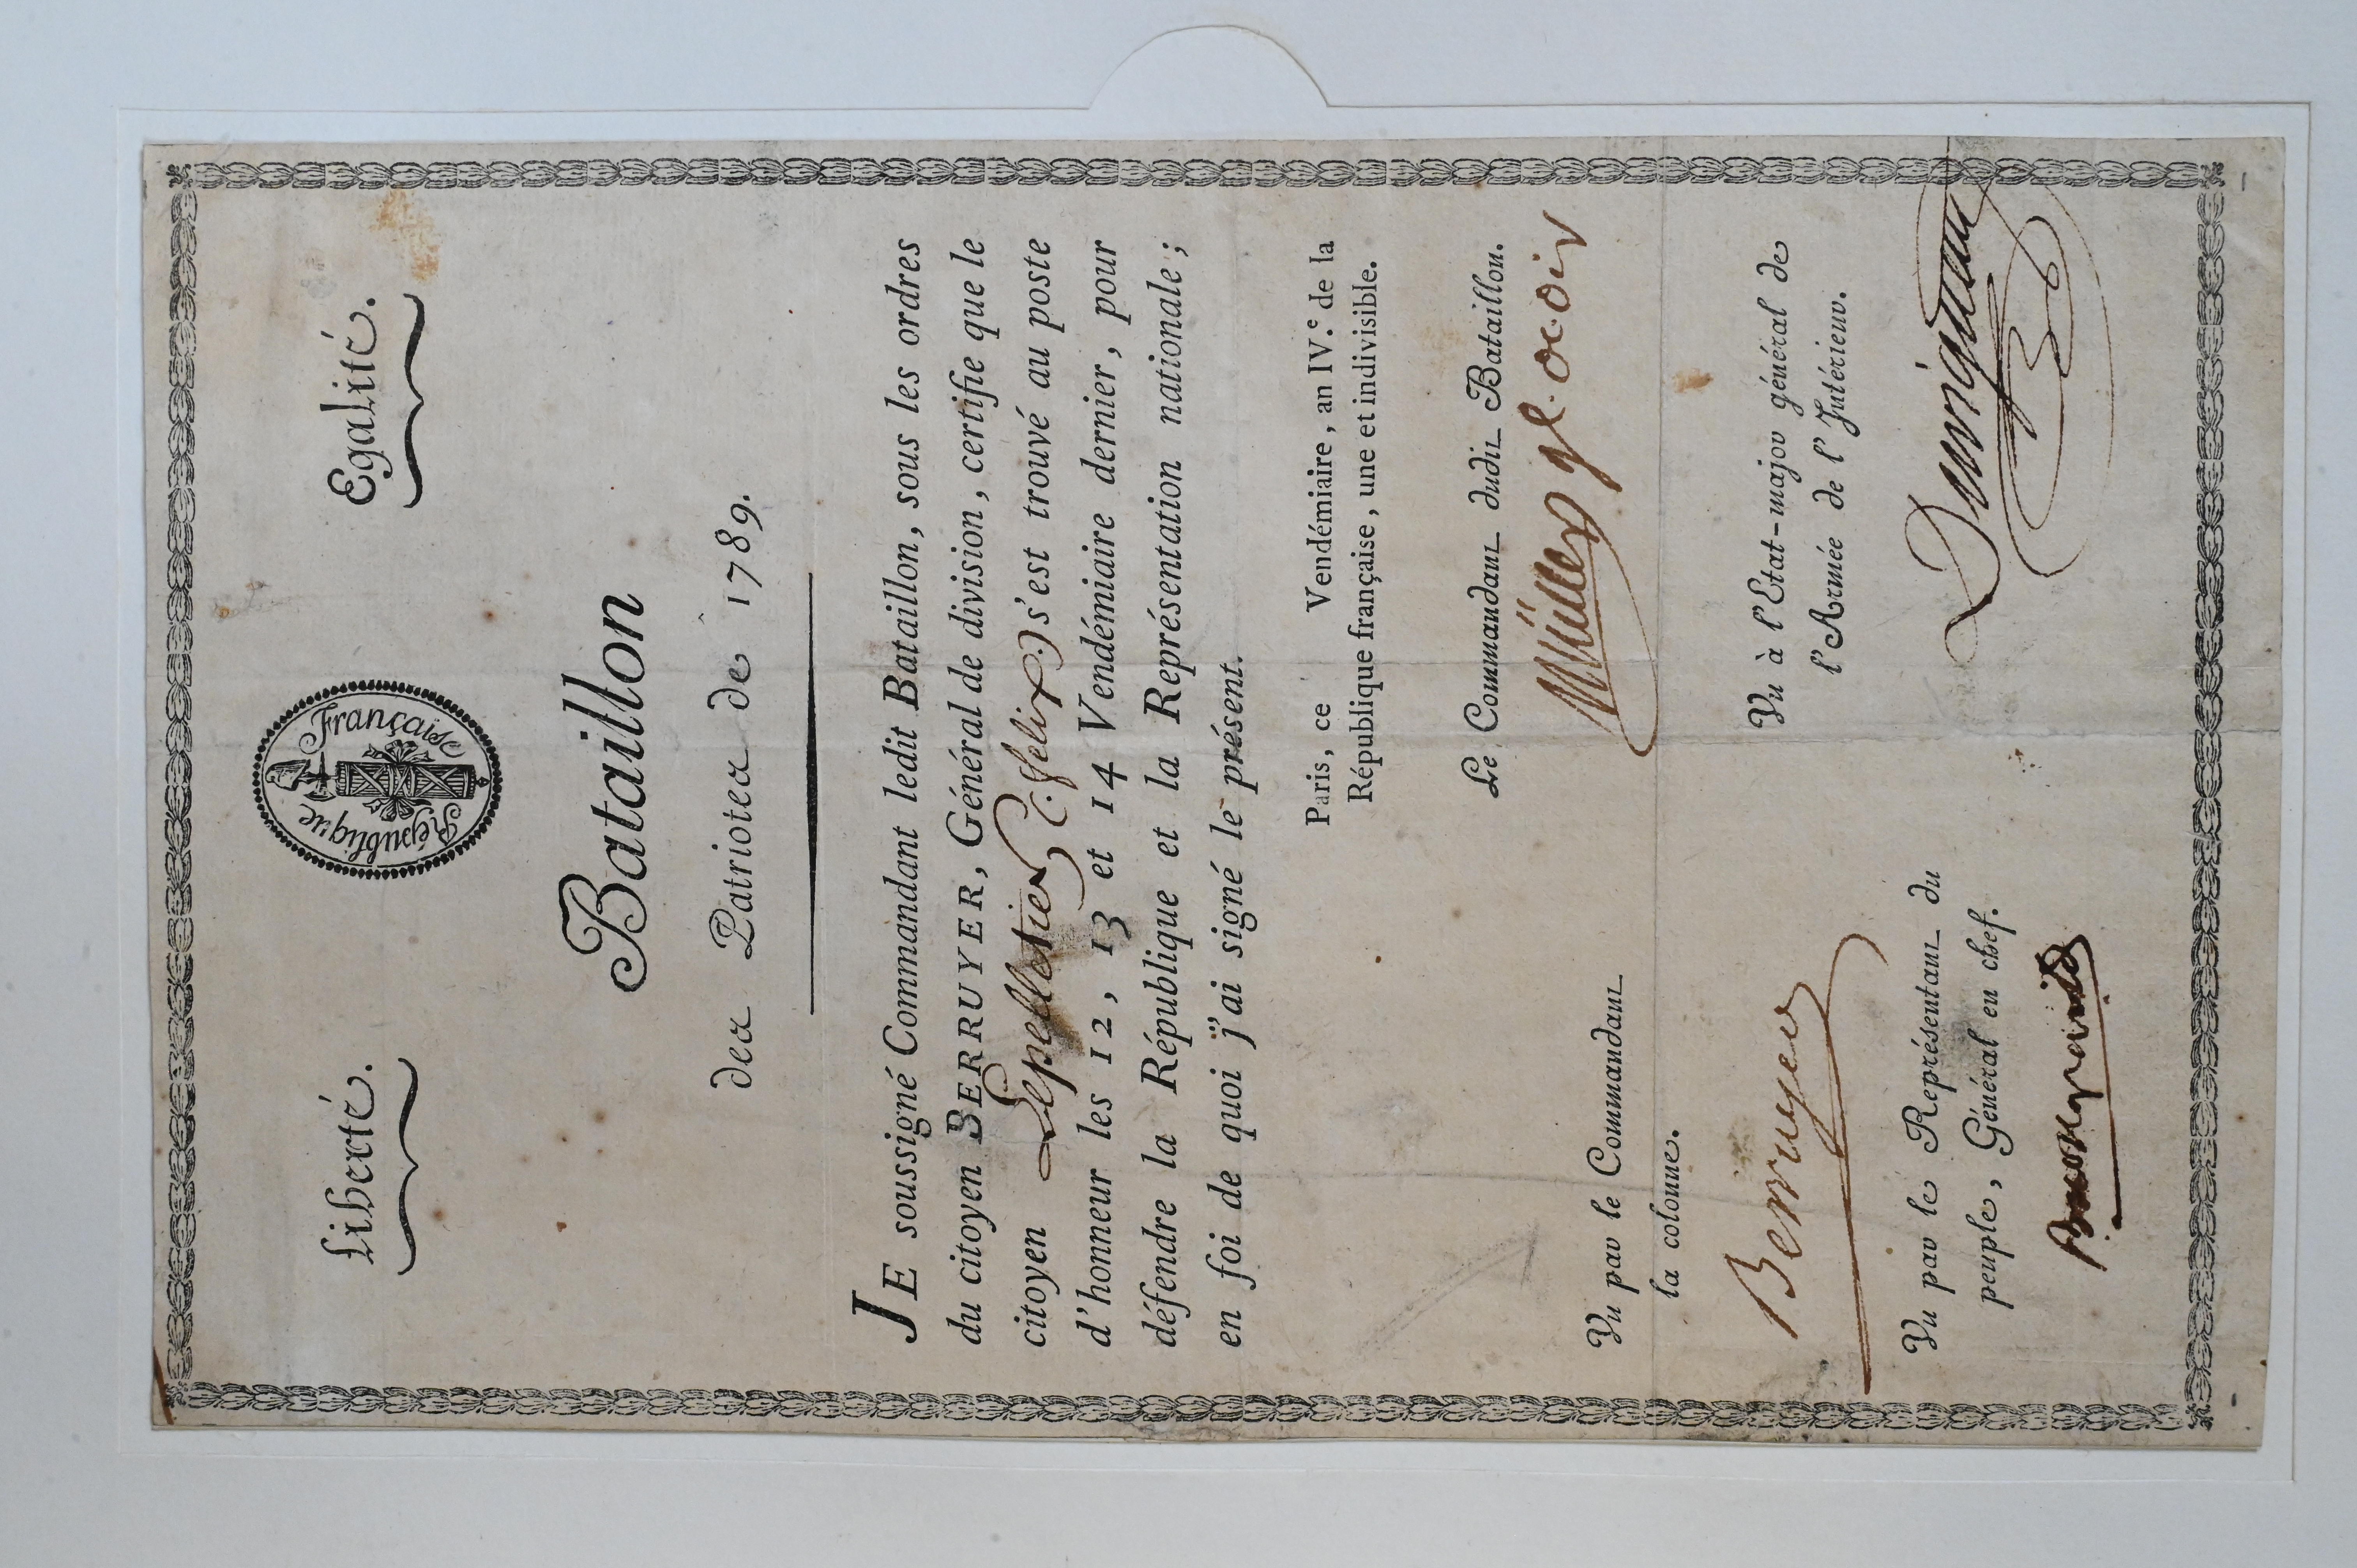 Liberté. Egalité.
République Française
Bataillon
des Patriotes de 1789.
JE soussigné Commandant ledit Bataillon, sous les ordres
du citoyen BERRUYER, Général de division, certifie que le
citoyen Lepelletier (felix.) s'est trouvé au poste
d'honneur les 12, 13 et 14 Vendémiaire dernier, pour
défendre la République et la Représentation nationale ;
en foi de quoi j'ai signé le présent.
Paris, ce Vendémiaire, an IV.e de la
République française, une et indivisible.
Le Commandant dudit Bataillon.
Müller
Vu par le Commandant
la colonne.
Berruyer
Vu à l'Etat-major général de
l'Armée de l'Intérieur.
Vu par le Représentant du
peuple, Général en chef.